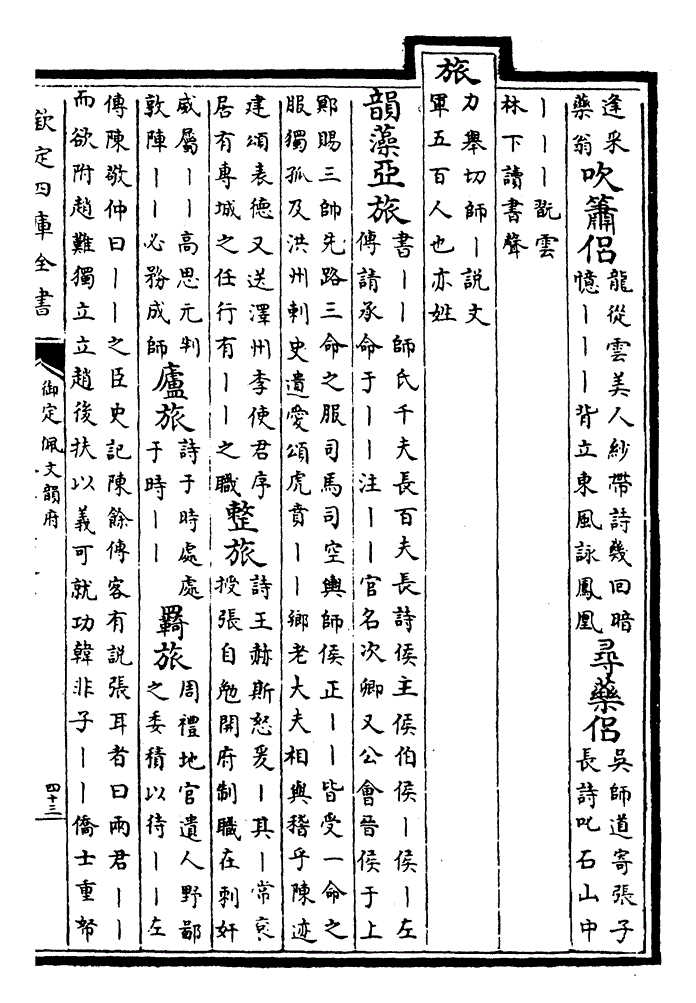 逢采
藥翁
吹簫侶
龍從雲美人紗帶詩幾回暗
憶丨丨丨背立東風詠鳳凰
尋藥侶
吳師道寄張子
長詩叱石山中
丨丨丨翫雲
林下讀書聲
旅
力舉切師丨説文
軍五百人也亦姓
韻藻亞旅
書丨丨師氏千夫長百夫長詩侯主侯伯侯丨侯丨左
傳請承命于丨丨注丨丨官名次卿又公會晉侯于上
鄍賜三帥先路三命之服司馬司空輿師侯正丨丨皆受一命之
服獨孤及洪州刺史遺愛頌虎賁丨丨鄉老大夫相與稽乎陳迹
建頌表德又送澤州李使君序
居有專城之任行有丨丨之職
整旅
詩王赫斯怒爰丨其丨常衮
授張自勉開府制職在刺奸
威屬丨丨高思元判
敦陣丨丨必務成師
廬旅
詩于時處處
于時丨丨
羇旅
周禮地官遺人野鄙
之委積以待丨丨左
傳陳敬仲曰丨丨之臣史記陳餘傳客有説張耳者曰兩君丨丨
而欲附趙難獨立立趙後扶以義可就功韓非子丨丨僑士重帑
欽定四庫全書
御定佩文韻府
四十三